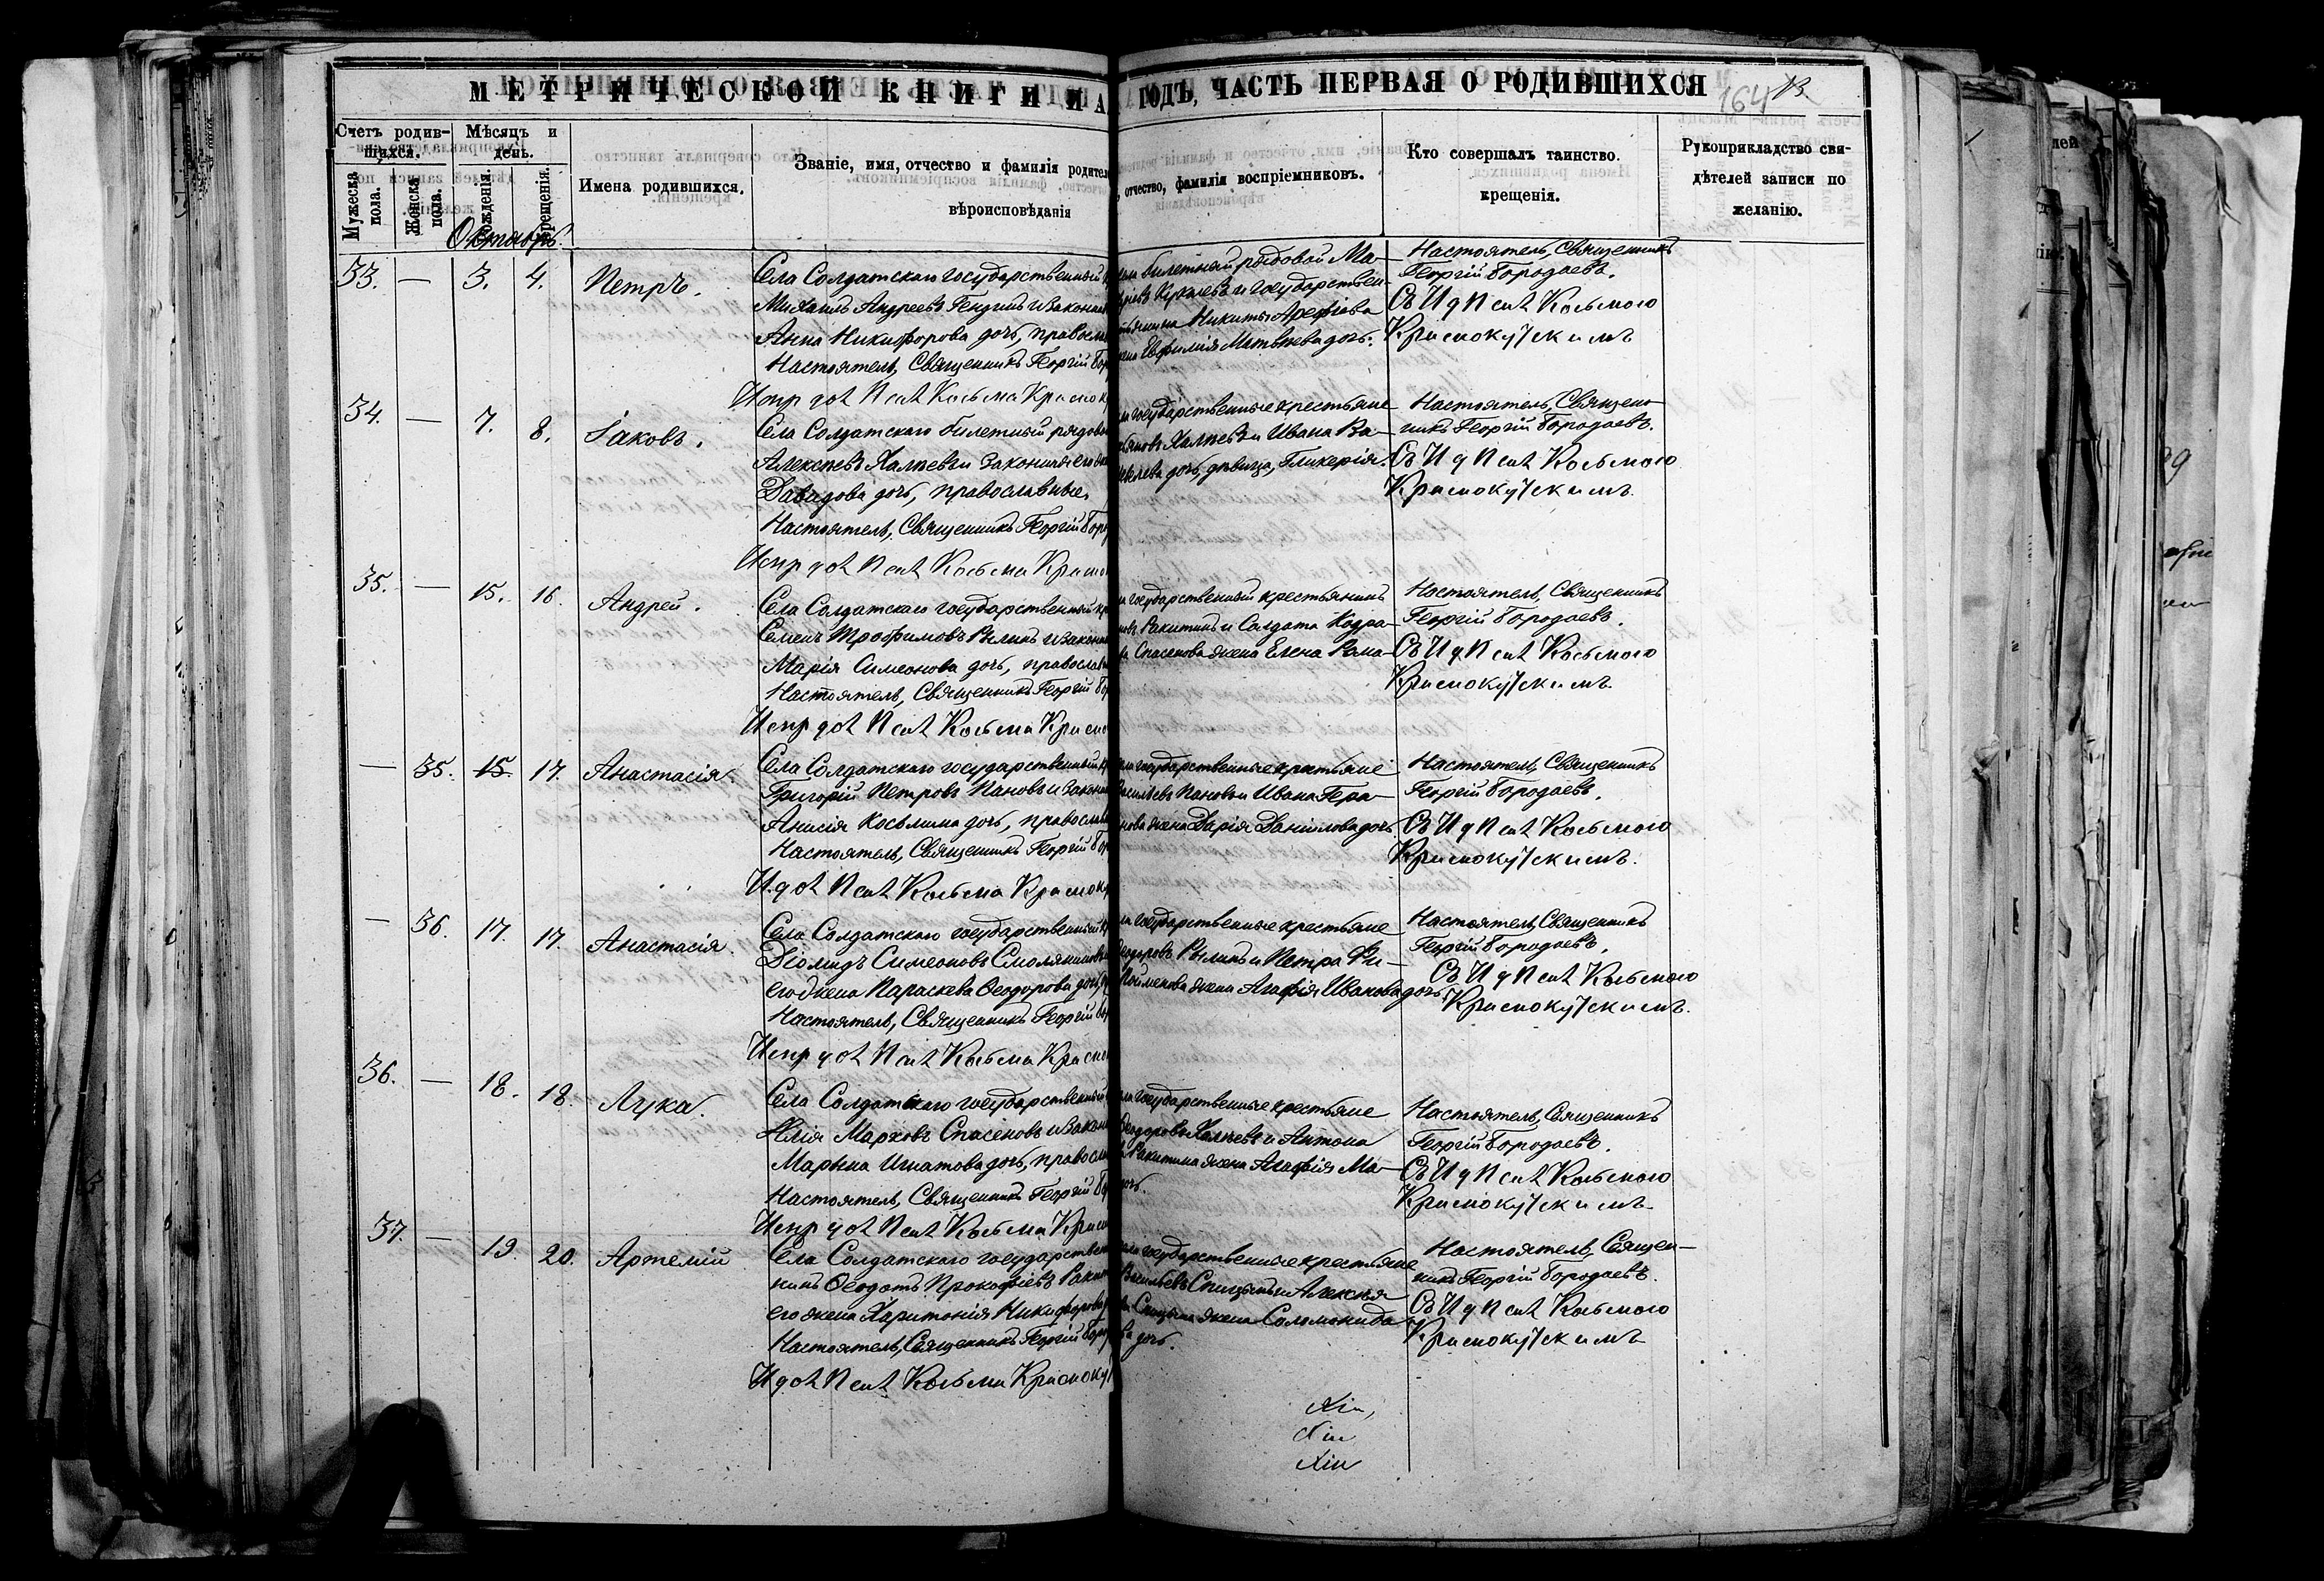 МЕТРИЧЕСКОЙ КНИГИ НА ГОДЪ, ЧАСТЬ ПЕРВАЯ О РОДИВШИХСЯ 164
Счетъ родив-
шихся.
Мужеска пола.
Женска пола.
Мѣсяцъ и
день.
рожденія.
крещенія.
Имена родившихся.
Званіе, имя, отчество и фамилія родител
вѣроисповѣданія
отчество, фамилія воспріемниковъ.
Кто совершалъ таинство
крещенія.
Рукоприкладство сви-
дѣтелей записи по
желанію.
Октябрь
33. — 3. 4. Петръ.
Села Солдатскаго государственный
Михаилъ Андреевъ и законная
Анна Никифорова дочь, православ
Настоятель, Священникъ Георгій Бор
Испр дол Псал Косьма Краснок
билетный рядовой Ма-
и государствен-
Никиты Арефіева
Евфимія Матвѣева дочь.
Настоятель, Священникъ
Георгій Бородаевъ.
Съ И д Псал Косьмою
Краснокутскимъ
34. — 7. 8. Іаковъ.
Села Солдатскаго билетный рядово
Алексѣевъ Халѣевъ и законная его
Давидова дочь, православные.
Настоятель, Священникъ Георгій Боро
Испр дол Псал Косьма Красно
государственные крестьяне
Халѣевъ и Ивана Ва-
дочь, дѣвица, Гликерія.
Настоятель, Священ-
никъ Георгій Бородаевъ.
Съ И д Псал Косьмою
Краснокутскимъ.
35. — 15. 16. Андрей.
Села Солдатскаго государственный кр
Семенъ Трофимовъ Рылинъ и законна
Марія Симеонова дочь, православ
Настоятель, Священникъ Георгій Бо
Испр дол Псал Косьма Красно
государственный крестьянинъ
Ракитинъ и Солдата Кодра-
Спасенова жена Елена Рома-
Настоятель, Священникъ
Георгій Бородаевъ.
Съ И д Псал Косьмою
Краснокутскимъ.
— 35. 15. 17. Анастасія.
Села Солдатскаго государственный кр
Григорій Петровъ Пановъ и законн
Анисія Косьмина дочь, православ
Настоятель, Священникъ Георгій Бор
И. дол Псал Косьма Краснок
государственные кретьяне
Васильевъ Пановъ и Ивана Гера-
нова жена Дарія Даніилова дочь
Настоятель, Священникъ
Георгій Бородаевъ.
Съ И д Псал Косьмою
Краснокутскимъ.
— 36. 17. 17. Анастасія.
Села Солдатскаго государственный к
Діомидъ Симеоновъ Смоляниновъ
его жена Параскева Ѳеодорова дочь, п
Настоятель, Священникъ Георгій Бор
Испр дол Псал Косьма Красно
государственные крестьяне
Ѳеодоровъ Рылинъ и Петра Фи-
Пойменова жена Агафія Иванова дочь.
Настоятель, Священникъ
Георгій Бородаевъ.
Съ И д Псал Косьмою
Краснокутскимъ.
36. — 18. 18. Лука.
Села Солдатскаго государственный
Илія Марковъ Спасеновъ и закон
Марина Игнатова дочь, правосла
Настоятель, Священникъ Георгій Бор
Испр дол Псал Косьма Красн
государственные крестьяне
Ѳеодоровъ Халѣевъ и Антона
Ракитина жена Агафія Ма-
дочь.
Настоятель, Священникъ
Георгій Бородаевъ.
Съ И д Псал Косьмою
Краснокутскимъ
37. — 19. 20. Артемій
Села Солдатскаго государствен
нинъ Ѳеодотъ Прокофіевъ Раки
его жена Харитонія Никифорова
Настоятель, Священникъ Георгій Боро
И дол Псал Косьма Красноку
государственные крестьяне
Васильевъ Спицынъ и Алексѣя
Спицына жена Соломонида
дочь.
Настоятель, Священ-
никъ Георгій Бородаевъ.
Съ И д Псал Косьмою
Краснокутскимъ